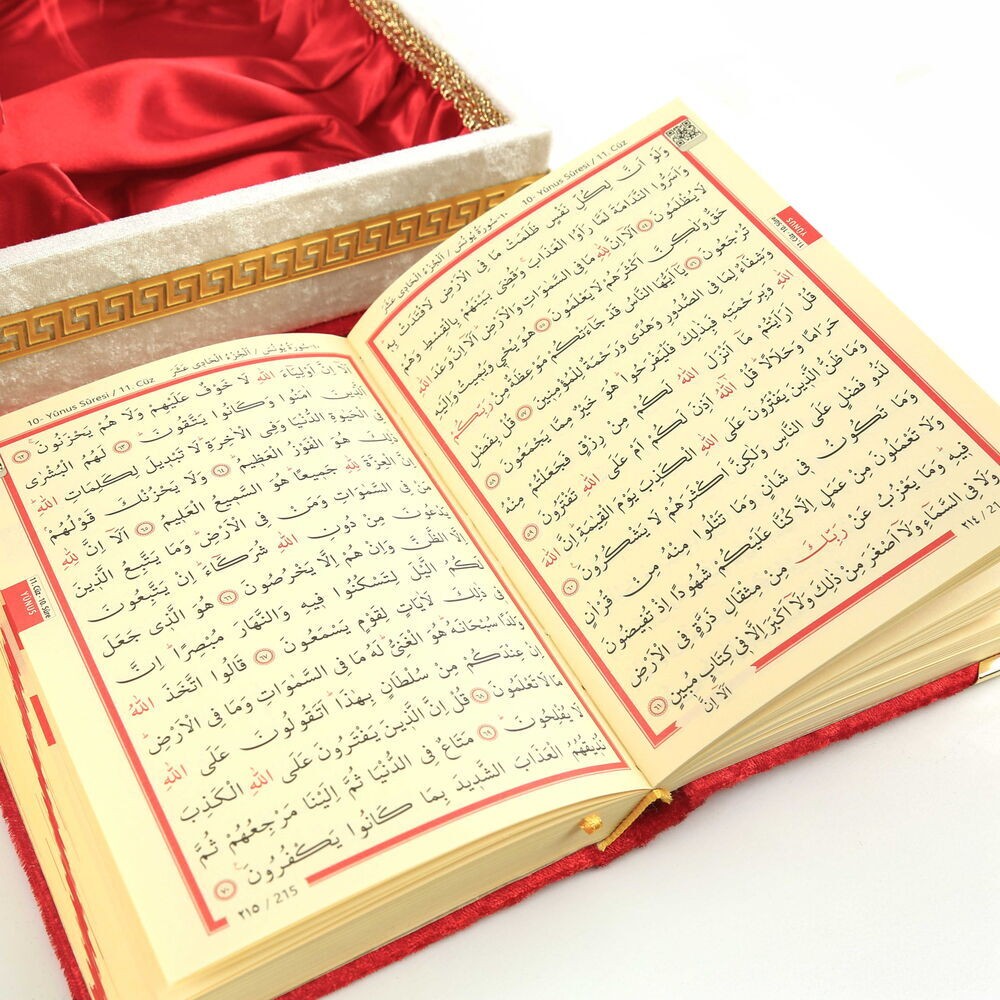 10- Yûnus Sûresi / 11. Cüz ١٠- سُورَةُ يُونُسَ / اَلْجُزْءُ الْحَادِى عَشَرَ
YÛNUS
11. Cüz - 10. Sûre
وَلَوْ اَنَّ لِكُلِّ نَفْسٍ ظَلَمَتْ مَا فِى الْاَرْضِ لَافْتَدَتْ بِهِ
وَاَسَرُّوا النَّدَامَةَ لَمَّا رَاَوُا الْعَذَابَ وَقُضِىَ بَيْنَهُمْ بِالْقِسْطِ وَهُمْ
لَا يُظْلَمُونَ ٥٤ اَلَا اِنَّ لِلّٰهِ مَا فِى السَّمٰوَاتِ وَالْاَرْضِ اَلَا اِنَّ وَعْدَ اللّٰهِ
حَقٌّ وَلٰكِنَّ اَكْثَرَهُمْ لَا يَعْلَمُونَ ٥٥ هُوَ يُحْيٖ وَيُمٖيتُ وَاِلَيْهِ
تُرْجَعُونَ ٥٦ يَا اَيُّهَا النَّاسُ قَدْ جَاءَتْكُمْ مَوْعِظَةٌ مِنْ رَبِّكُمْ
وَشِفَاءٌ لِمَا فِى الصُّدُورِ وَهُدًى وَرَحْمَةٌ لِلْمُؤْمِنٖينَ ٥٧ قُلْ بِفَضْلِ
اللّٰهِ وَبِرَحْمَتِهٖ فَبِذٰلِكَ فَلْيَفْرَحُوا هُوَ خَيْرٌ مِمَّا يَجْمَعُونَ ٥٨
قُلْ اَرَاَيْتُمْ مَا اَنْزَلَ اللّٰهُ لَكُمْ مِنْ رِزْقٍ فَجَعَلْتُمْ مِنْهُ
حَرَامًا وَحَلَالًا قُلْ اٰللّٰهُ اَذِنَ لَكُمْ اَمْ عَلَى اللّٰهِ تَفْتَرُونَ ٥٩
وَمَا ظَنُّ الَّذٖينَ يَفْتَرُونَ عَلَى اللّٰهِ الْكَذِبَ يَوْمَ الْقِيٰمَةِ اِنَّ اللّٰهَ
لَذُو فَضْلٍ عَلَى النَّاسِ وَلٰكِنَّ اَكْثَرَهُمْ لَا يَشْكُرُونَ ٦٠
وَمَا تَكُونُ فٖى شَاْنٍ وَمَا تَتْلُوا مِنْهُ مِنْ قُرْاٰنٍ
وَلَا تَعْمَلُونَ مِنْ عَمَلٍ اِلَّا كُنَّا عَلَيْكُمْ شُهُودًا اِذْ تُفٖيضُونَ
فٖيهِ وَمَا يَعْزُبُ عَنْ رَبِّكَ مِنْ مِثْقَالِ ذَرَّةٍ فِى الْاَرْضِ
وَلَا فِى السَّمَاءِ وَلَا اَصْغَرَ مِنْ ذٰلِكَ وَلَا اَكْبَرَ اِلَّا فٖى كِتَابٍ مُبٖينٍ ٦١
اَلَا اِنَّ
٢١٤ / 21
10- Yûnus Sûresi / 11. Cüz ١٠- سُورَةُ يُونُسَ / اَلْجُزْءُ الْحَادِى عَشَرَ
YÛNUS
11. Cüz - 10. Sûre
اَلَا اِنَّ اَوْلِيَاءَ اللّٰهِ لَا خَوْفٌ عَلَيْهِمْ وَلَا هُمْ يَحْزَنُونَ ٦٢
اَلَّذٖينَ اٰمَنُوا وَكَانُوا يَتَّقُونَ ٦٣ لَهُمُ الْبُشْرٰى
فِى الْحَيٰوةِ الدُّنْيَا وَفِى الْاٰخِرَةِ لَا تَبْدٖيلَ لِكَلِمَاتِ اللّٰهِ
ذٰلِكَ هُوَ الْفَوْزُ الْعَظٖيمُ ٦٤ وَلَا يَحْزُنْكَ قَوْلُهُمْ
اِنَّ الْعِزَّةَ لِلّٰهِ جَمٖيعًا هُوَ السَّمٖيعُ الْعَلٖيمُ ٦٥ اَلَا اِنَّ لِلّٰهِ
مَنْ فِى السَّمٰوَاتِ وَمَنْ فِى الْاَرْضِ وَمَا يَتَّبِعُ الَّذٖينَ
يَدْعُونَ مِنْ دُونِ اللّٰهِ شُرَكَاءَ اِنْ يَتَّبِعُونَ
اِلَّا الظَّنَّ وَاِنْ هُمْ اِلَّا يَخْرُصُونَ ٦٦ هُوَ الَّذٖى جَعَلَ
لَكُمُ الَّيْلَ لِتَسْكُنُوا فٖيهِ وَالنَّهَارَ مُبْصِرًا اِنَّ
فٖى ذٰلِكَ لَاٰيَاتٍ لِقَوْمٍ يَسْمَعُونَ ٦٧ قَالُوا اتَّخَذَ اللّٰهُ
وَلَدًا سُبْحَانَهُ هُوَ الْغَنِىُّ لَهُ مَا فِى السَّمٰوَاتِ وَمَا فِى الْاَرْضِ
اِنْ عِنْدَكُمْ مِنْ سُلْطَانٍ بِهٰذَا اَتَقُولُونَ عَلَى اللّٰهِ
مَا لَا تَعْلَمُونَ ٦٨ قُلْ اِنَّ الَّذٖينَ يَفْتَرُونَ عَلَى اللّٰهِ الْكَذِبَ
لَا يُفْلِحُونَ ٦٩ مَتَاعٌ فِى الدُّنْيَا ثُمَّ اِلَيْنَا مَرْجِعُهُمْ ثُمَّ
نُذٖيقُهُمُ الْعَذَابَ الشَّدٖيدَ بِمَا كَانُوا يَكْفُرُونَ ٧٠
٢١٥ / 215